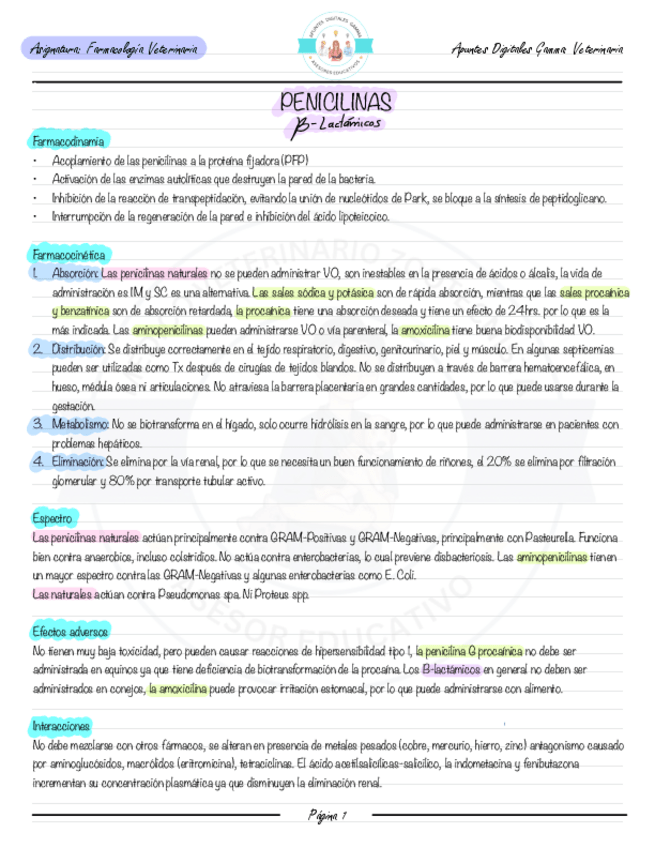 Asignatura: Farmacología Veterinaria
APUNTES DIGITALES GAMMA
ASESORES EDUCATIVOS
Apuntes Digitales Gamma Veterinaria
PENICILINAS
β-Lactámicos
Farmacodinamia
• Acoplamiento de las penicilinas a la proteína fijadora (PFP)
• Activación de las enzimas autolíticas que destruyen la pared de la bacteria.
• Inhibición de la reacción de transpeptidación, evitando la unión de nucleótidos de Park, se bloque a la síntesis de peptidoglicano.
• Interrumpción de la regeneración de la pared e inhibición del ácido lipoteicoico.
Farmacocinética
1. Absorción: Las penicilinas naturales no se pueden administrar VO, son inestables en la presencia de ácidos o álcalis, la vida de
administración es IM y SC es una alternativa. Las sales sódica y potásica son de rápida absorción, mientras que las sales procaínica
y benzatínica son de absorción retardada, la procaínica tiene una absorción deseada y tiene un efecto de 24hrs. por lo que es la
más indicada. Las aminopenicilinas pueden administrarse VO o vía parenteral, la amoxicilina tiene buena biodisponibilidad VO.
2. Distribución: Se distribuye correctamente en el tejido respiratorio, digestivo, genitourinario, piel y músculo. En algunas septicemias
pueden ser utilizadas como Tx después de cirugías de tejidos blandos. No se distribuyen a través de barrera hematoencefálica, en
hueso, médula ósea ni articulaciones. No atraviesa la barrera placentaria en grandes cantidades, por lo que puede usarse durante la
gestación.
3. Metabolismo: No se biotransforma en el hígado, solo ocurre hidrólisis en la sangre, por lo que puede administrarse en pacientes con
problemas hepáticos.
4. Eliminación: Se elimina por la vía renal, por lo que se necesita un buen funcionamiento de riñones, el 20% se elimina por filtración
glomerular y 80% por transporte tubular activo.
Espectro
Las penicilinas naturales actúan principalmente contra GRAM-Positivas y GRAM-Negativas, principalmente con Pasteurella. Funciona
bien contra anaerobios, incluso colstrídios. No actúa contra enterobacterias, lo cual previene disbacteriosis. Las aminopenicilinas tienen
un mayor espectro contra las GRAM-Negativas y algunas enterobacterias como E. Coli.
Las naturales actúan contra Pseudomonas spa. Ni Proteus spp.
Efectos adversos
No tienen muy baja toxicidad, pero pueden causar reacciones de hipersensibilidad tipo 1, la penicilina G procaínica no debe ser
administrada en equinos ya que tiene deficiencia de biotransformación de la procaína. Los B-lactámicos en general no deben ser
administrados en conejos, la amoxicilina puede provocar irritación estomacal, por lo que puede administrarse con alimento.
Interacciones
No debe mezclarse con otros fármacos, se alteran en presencia de metales pesados (cobre, mercurio, hierro, zinc) antagonismo causado
por aminoglucósidos, macrólidos (eritromicina), tetraciclinas. El ácido acetilsalicílicas-salicílico, la indometacina y fenibutazona
incrementan su concentración plasmática ya que disminuyen la eliminación renal.
Página 1
VETERINARIO
ASESOR EDUCATIVO